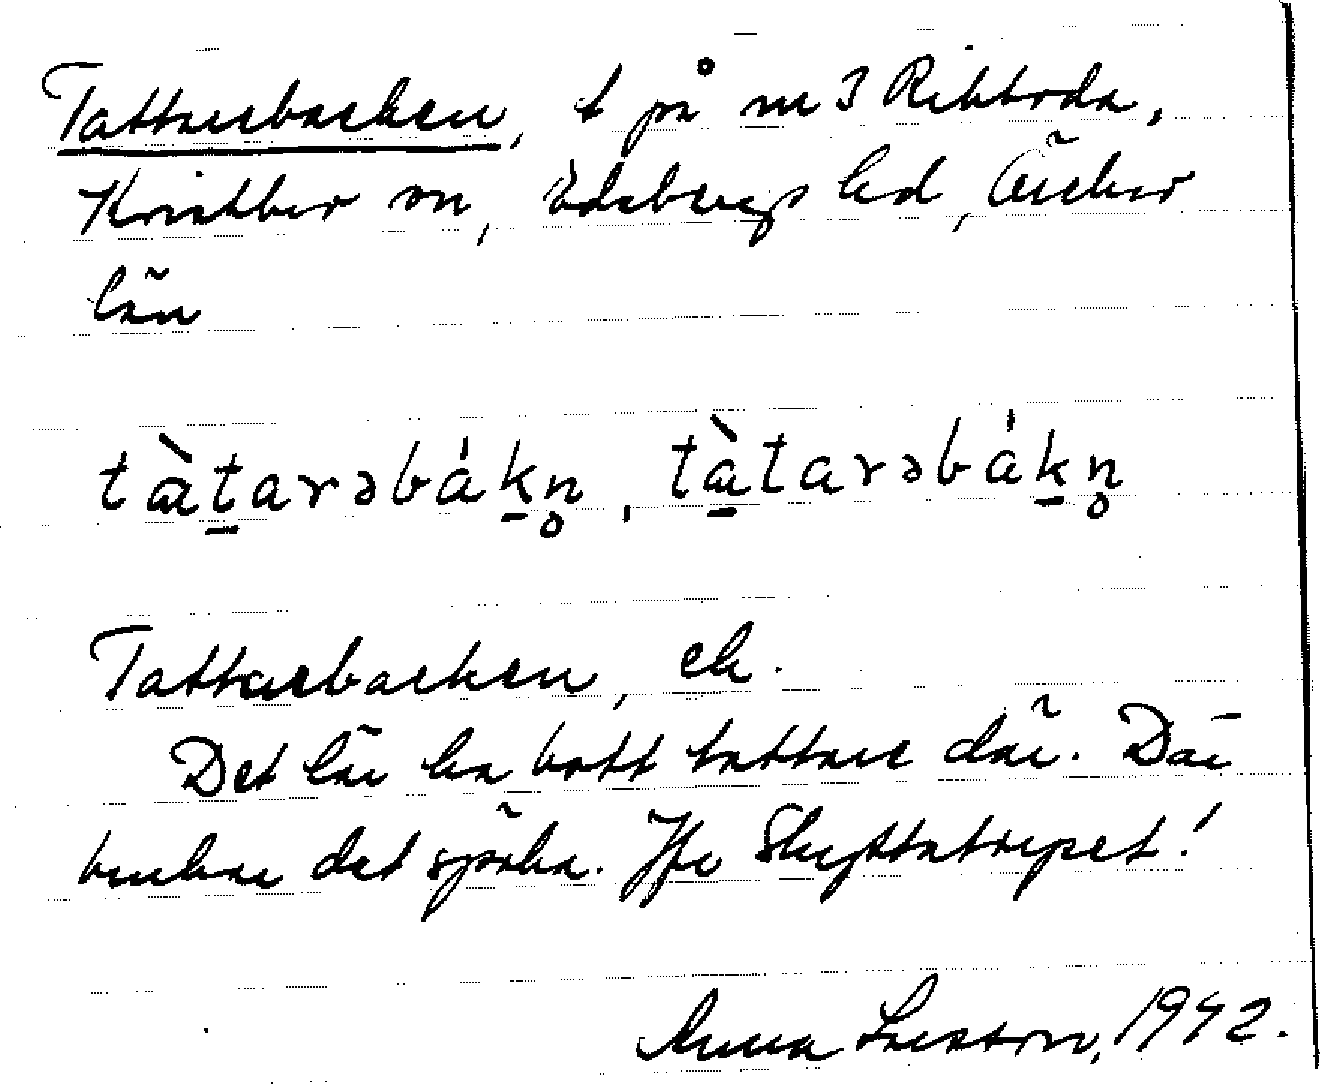 Tattarbacken, t på nr 3 Riktorda,
Knistbro sn, Edsbergs hd, Örebro
län
tàtarəbákn̥, tàtarəbákn̥
Tattarbacken, ek.
Det lär ha bott tattare där. Där
brukar det spöka. Jfr Skyttatorpet!
Anna Larsson, 1942.